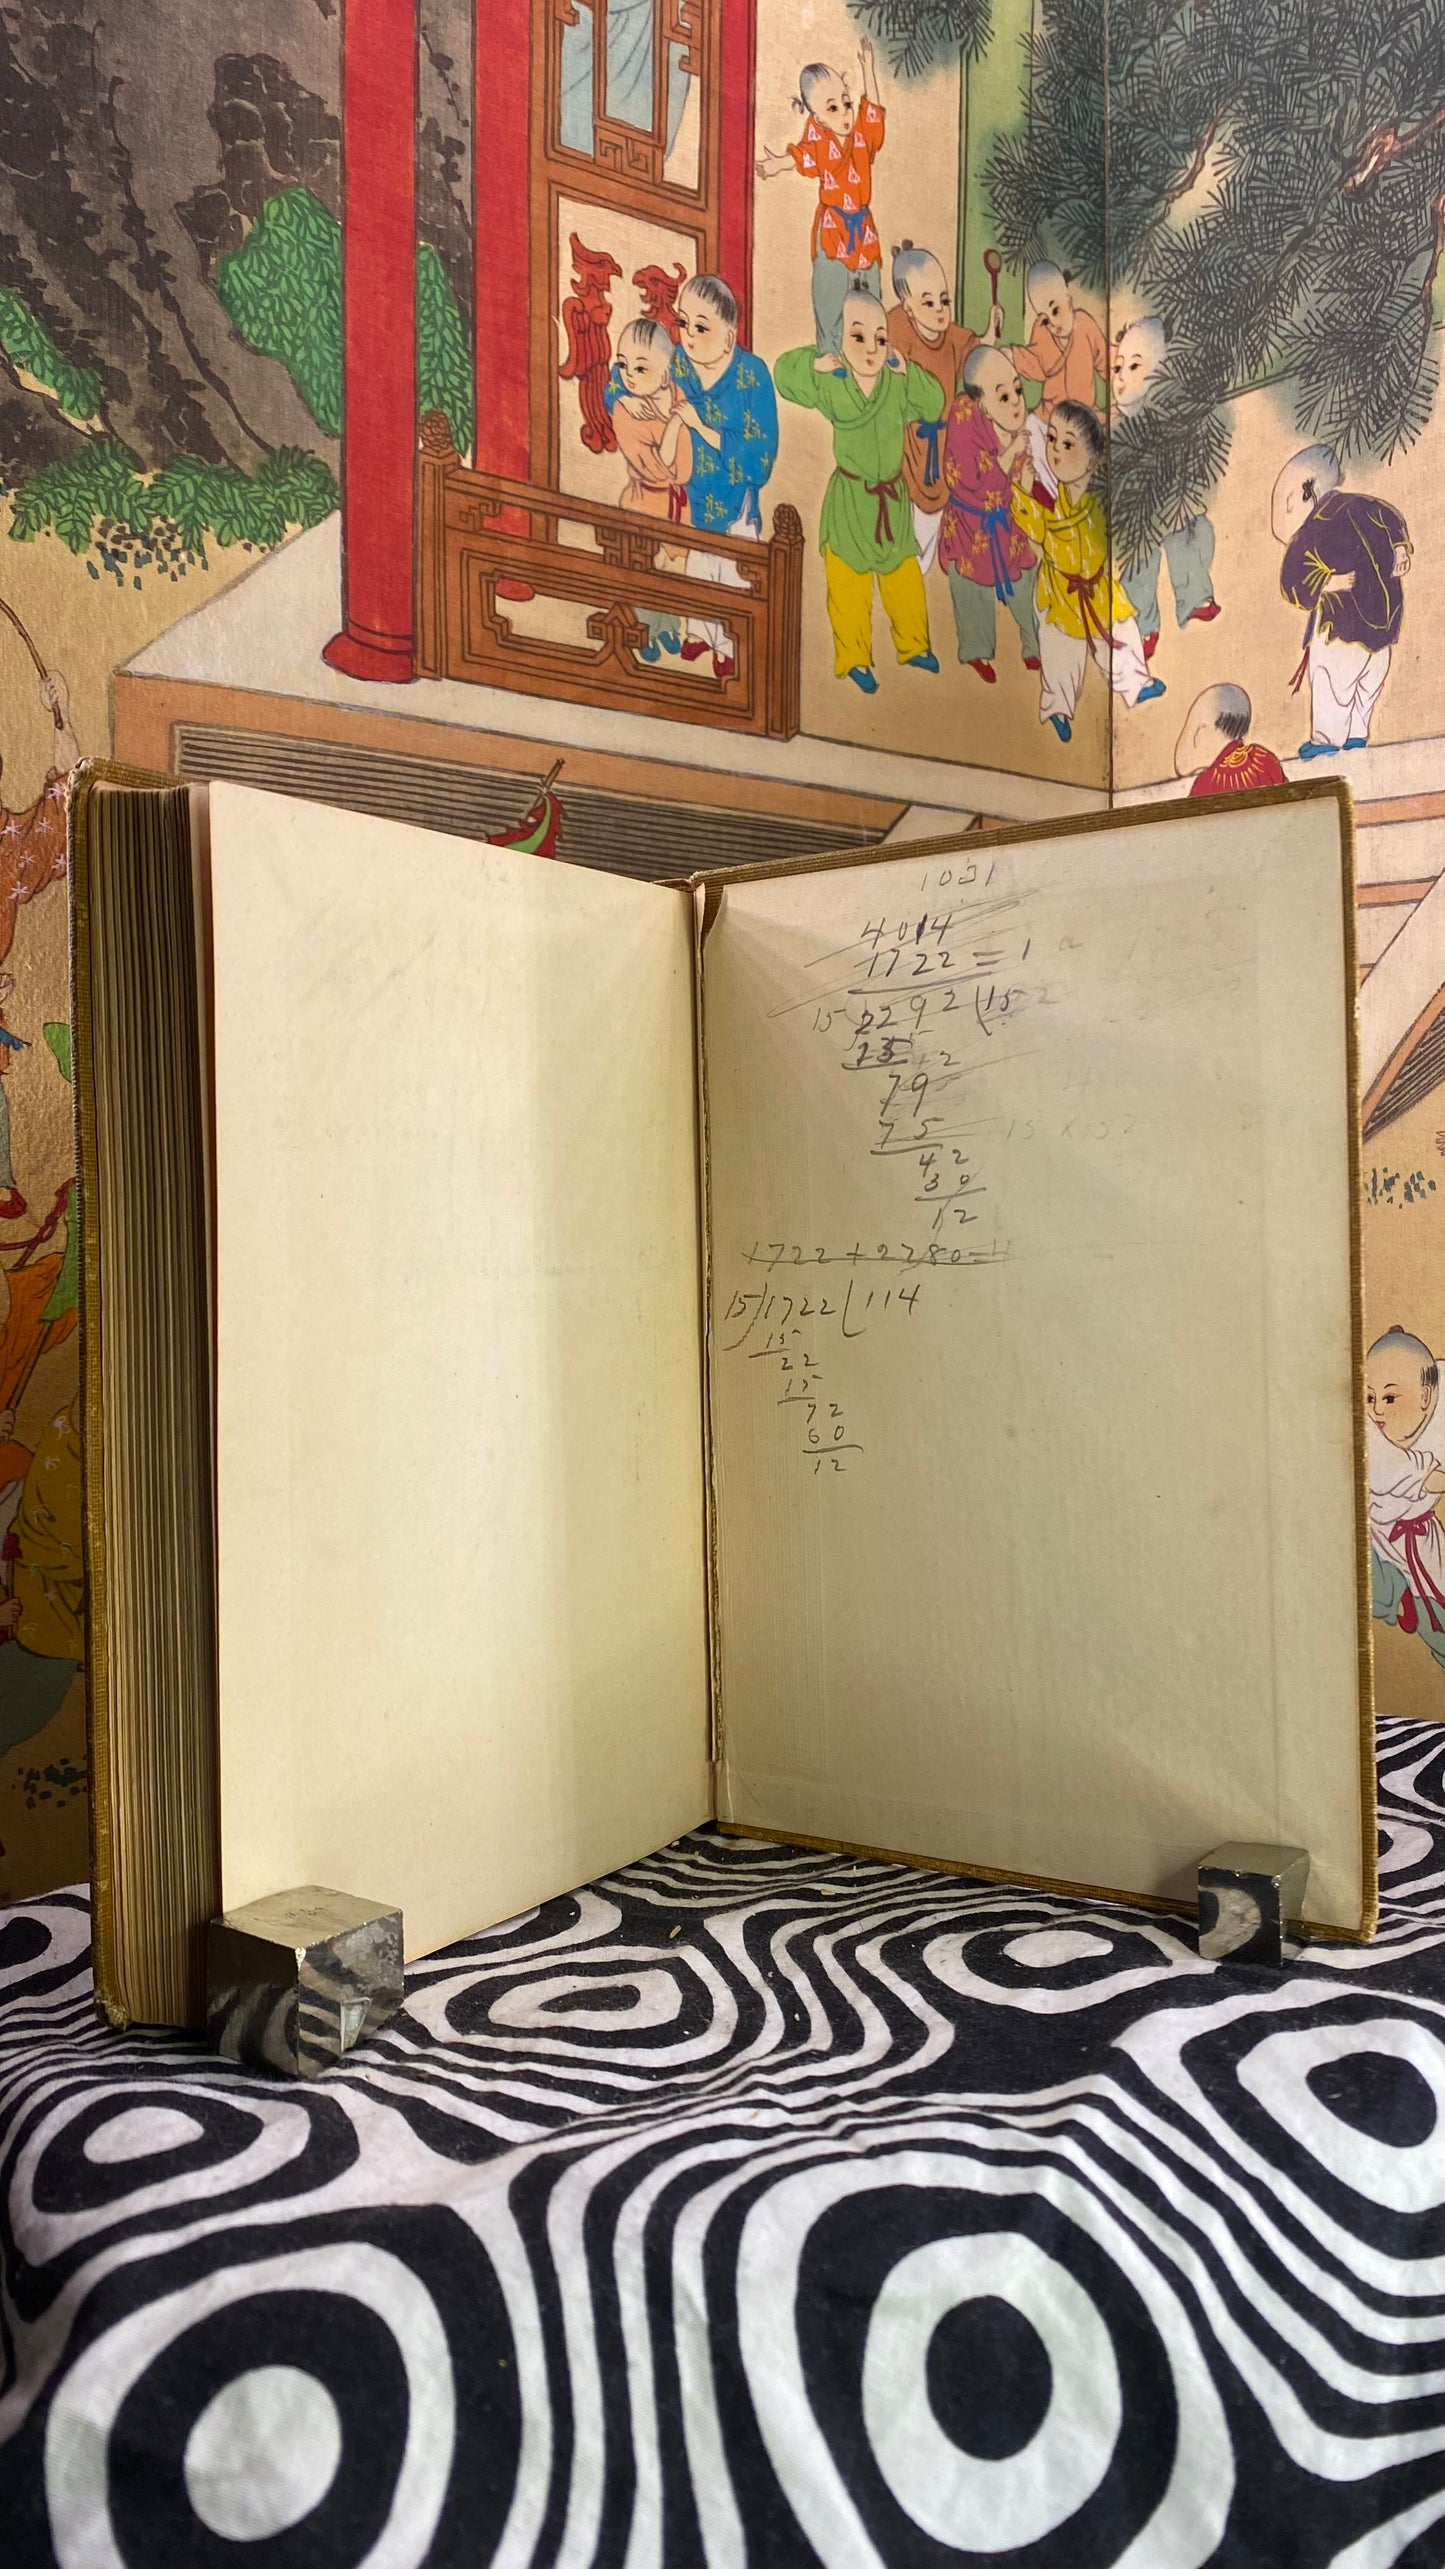 4014
1722 = 1
15 2292 (15 2
15
79
75
42
30
12
15 x 152
1722 + 2280 =
15)1722(114
15
22
15
72
60
12